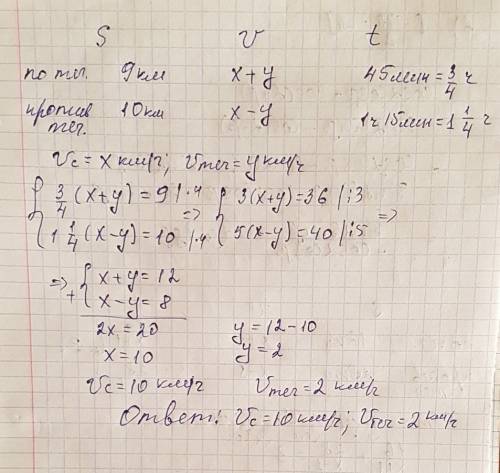 S V t
по теч. 9км x+y 45мин = 3/4 ч
против теч. 10км x-y 1ч 15мин = 1 1/4 ч
Vс = x км/ч; Vтеч = y км/ч
{ 3/4 (x+y) = 9 |·4 => { 3(x+y) = 36 |:3 =>
{ 1 1/4 (x-y) = 10 |·4 { 5(x-y) = 40 |:5
=> + { x+y = 12
{ x-y = 8
2x = 20 y = 12-10
x = 10 y = 2
Vс = 10 км/ч Vтеч = 2 км/ч
Ответ: Vс = 10 км/ч; Vтеч = 2 км/ч